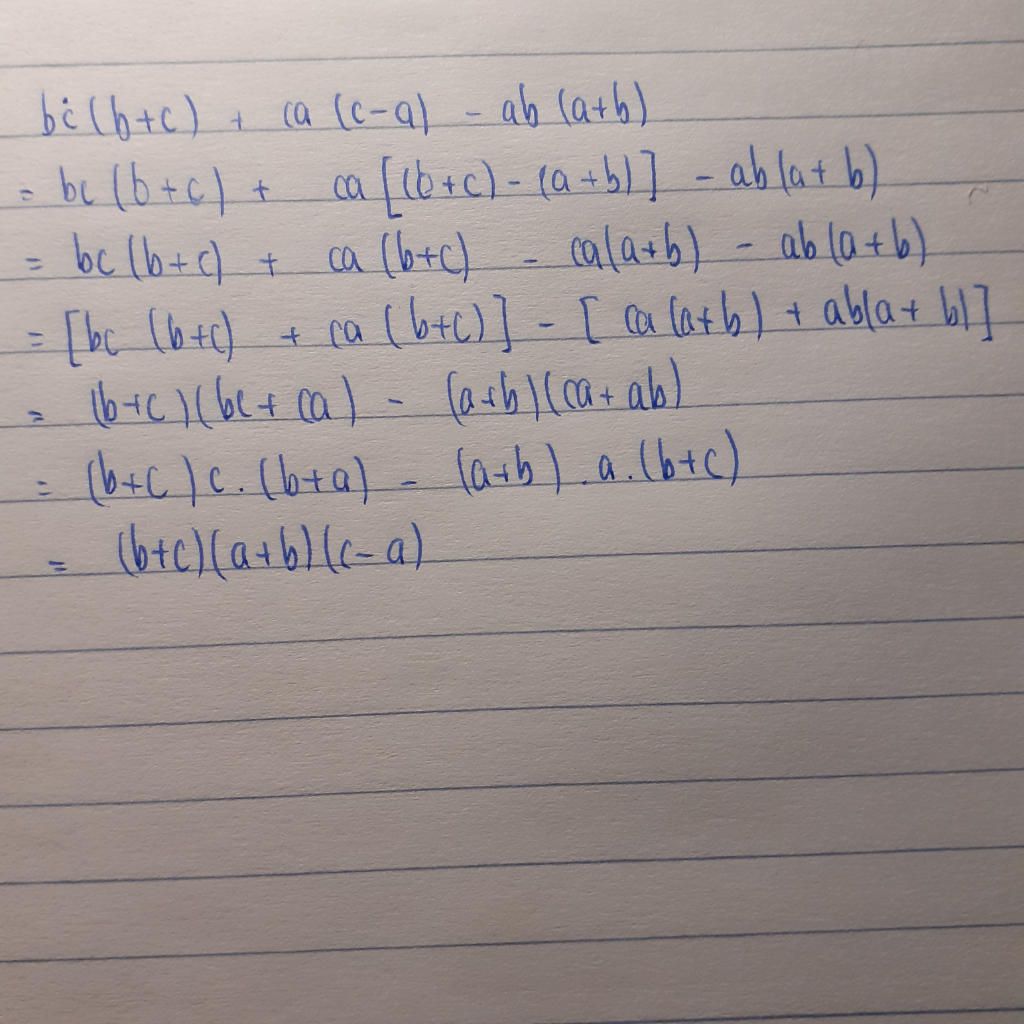 bc(b+c) + ca (c-a) - ab (a+b)
= bc (b+c) + ca [(b+c) - (a+b)] - ab(a+ b)
= bc (b+c) + ca (b+c) - ca(a+b) - ab (a+b)
= [bc (b+c) + ca (b+c)] - [ ca (a+b) + ab(a+ b)]
= (b+c)(bc+ ca) - (a+b)(ca+ ab)
= (b+c)c.(b+a) - (a+b).a.(b+c)
= (b+c)(a+b)(c-a)